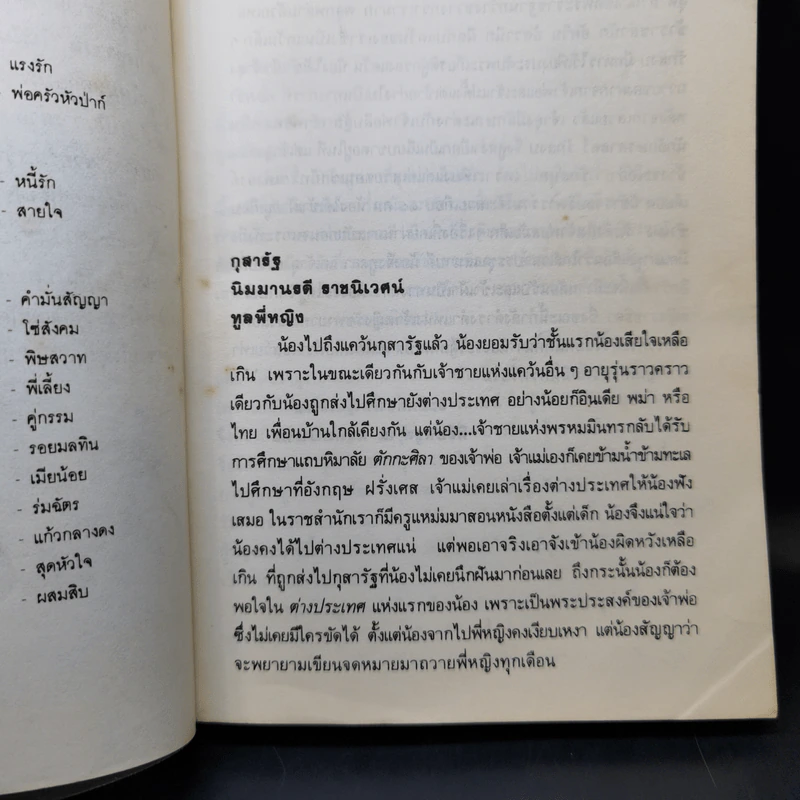 แรงรัก
พ่อครัวหัวป่าก์
- หนี้รัก
- สายใจ
- คำมั่นสัญญา
- โซ่สังคม
- พิษสวาท
- พี่เลี้ยง
- คู่กรรม
- รอยมลทิน
- เมียน้อย
- ร่มฉัตร
- แก้วกลางดง
- สุดหัวใจ
- ผสมสิบ
กุสารัฐ
นิมมานรดี ราชนิเวศน์
ทูลพี่หญิง
น้องไปถึงแคว้นกุสารัฐแล้ว น้องยอมรับว่าชั้นแรกน้องเสียใจเหลือ
เกิน เพราะในขณะเดียวกันกับเจ้าชายแห่งแคว้นอื่น ๆ อายุรุ่นราวคราว
เดียวกับน้องถูกส่งไปศึกษายังต่างประเทศ อย่างน้อยก็อินเดีย พม่า หรือ
ไทย เพื่อนบ้านใกล้เคียงกัน แต่น้อง...เจ้าชายแห่งพรหมมินทรกลับได้รับ
การศึกษาแถบหิมาลัย ตักกะศิลา ของเจ้าพ่อ เจ้าแม่เองก็เคยข้ามน้ำข้ามทะเล
ไปศึกษาที่อังกฤษ ฝรั่งเศส เจ้าแม่เคยเล่าเรื่องต่างประเทศให้น้องฟัง
เสมอ ในราชสำนักเราก็มีครูแหม่มมาสอนหนังสือตั้งแต่เด็ก น้องจึงแน่ใจว่า
น้องคงได้ไปต่างประเทศแน่ แต่พอเอาจริงเอาจังเข้าน้องผิดหวังเหลือ
เกิน ที่ถูกส่งไปกุสารัฐที่น้องไม่เคยนึกฝันมาก่อนเลย ถึงกระนั้นน้องก็ต้อง
พอใจใน ต่างประเทศ แห่งแรกของน้อง เพราะเป็นพระประสงค์ของเจ้าพ่อ
ซึ่งไม่เคยมีใครขัดได้ ตั้งแต่น้องจากไปพี่หญิงคงเงียบเหงา แต่น้องสัญญาว่า
จะพยายามเขียนจดหมายมาถวายพี่หญิงทุกเดือน